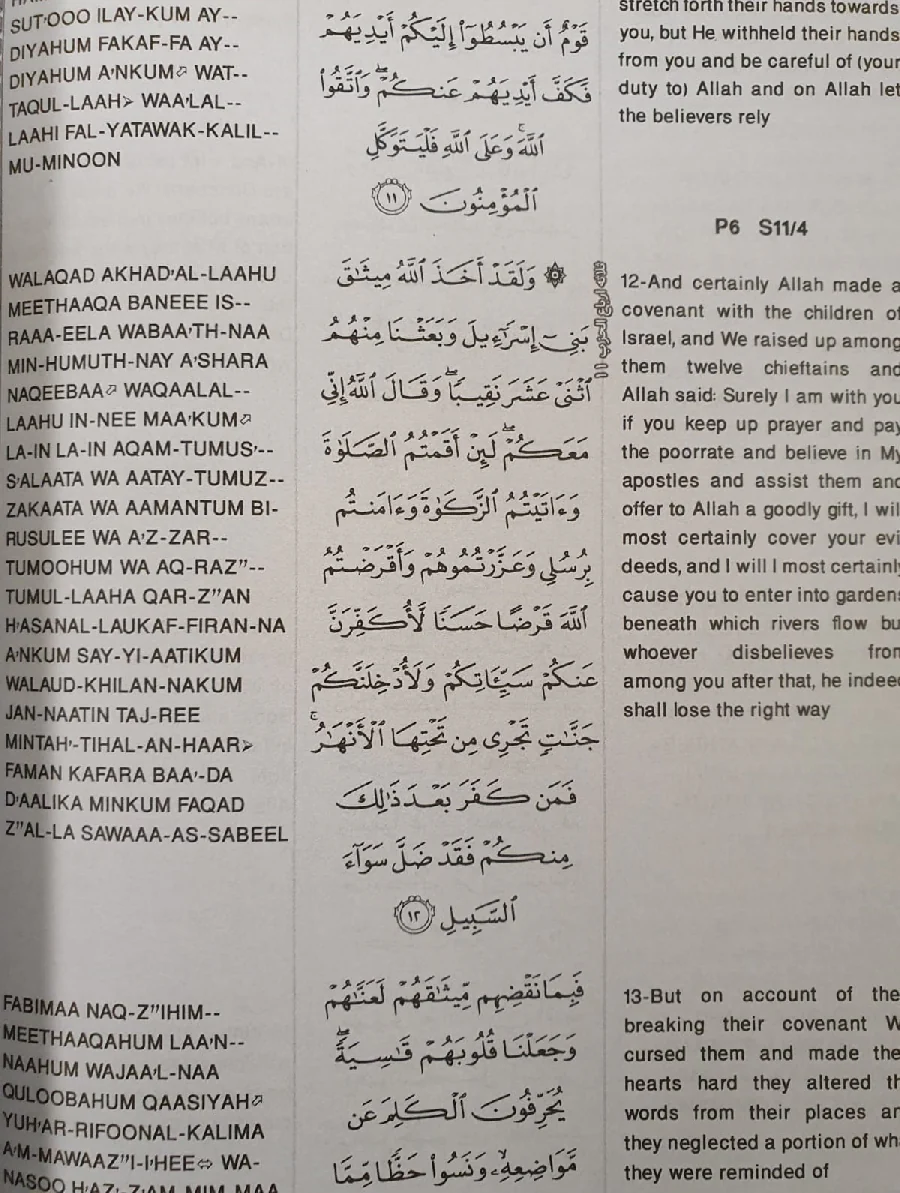 SUT'OOO ILAY-KUM AY--
DIYAHUM FAKAF-FA AY--
DIYAHUM A'NKUM⬀ WAT--
TAQUL-LAAH> WAA'LAL--
LAAHI FAL-YATAWAK-KALIL--
MU-MINOON
WALAQAD AKHAD'AL-LAAHU
MEETHAAQA BANEEE IS--
RAAA-EELA WABAA'TH-NAA
MIN-HUMUTH-NAY A'SHARA
NAQEEBAA⬀ WAQAALAL--
LAAHU IN-NEE MAA'KUM⬀
LA-IN LA-IN AQAM-TUMUS'--
S'ALAATA WA AATAY-TUMUZ--
ZAKAATA WA AAMANTUM BI-
RUSULEE WA A'Z-ZAR--
TUMOOHUM WA AQ-RAZ"--
TUMUL-LAAHA QAR-Z"AN
H'ASANAL-LAUKAF-FIRAN-NA
A'NKUM SAY-YI-AATIKUM
WALAUD-KHILAN-NAKUM
JAN-NAATIN TAJ-REE
MINTAH'-TIHAL-AN-HAAR>
FAMAN KAFARA BAA'-DA
D'AALIKA MINKUM FAQAD
Z"AL-LA SAWAAA-AS-SABEEL
FABIMAA NAQ-Z"IHIM--
MEETHAAQAHUM LAA'N--
NAAHUM WAJAA'L-NAA
QULOOBAHUM QAASIYAH⬀
YUH'AR-RIFOONAL-KALIMA
A'M-MAWAAZ"I-I'HEE⬄ WA-
قَوْمٌ أَن يَبْسُطُوٓا۟ إِلَيْكُمْ أَيْدِيَهُمْ
فَكَفَّ أَيْدِيَهُمْ عَنكُمْ ۖ وَٱتَّقُوا۟
ٱللَّهَ ۚ وَعَلَى ٱللَّهِ فَلْيَتَوَكَّلِ
ٱلْمُؤْمِنُونَ ١١
۞ وَلَقَدْ أَخَذَ ٱللَّهُ مِيثَٰقَ
بَنِىٓ إِسْرَٰٓءِيلَ وَبَعَثْنَا مِنْهُمُ
ٱثْنَىْ عَشَرَ نَقِيبًا ۖ وَقَالَ ٱللَّهُ إِنِّى
مَعَكُمْ ۖ لَئِنْ أَقَمْتُمُ ٱلصَّلَوٰةَ
وَءَاتَيْتُمُ ٱلزَّكَوٰةَ وَءَامَنتُم
بِرُسُلِى وَعَزَّرْتُمُوهُمْ وَأَقْرَضْتُمُ
ٱللَّهَ قَرْضًا حَسَنًا لَّأُكَفِّرَنَّ
عَنكُمْ سَيِّـَٔاتِكُمْ وَلَأُدْخِلَنَّكُمْ
جَنَّٰتٍ تَجْرِى مِن تَحْتِهَا ٱلْأَنْهَٰرُ ۚ
فَمَن كَفَرَ بَعْدَ ذَٰلِكَ
مِنكُمْ فَقَدْ ضَلَّ سَوَآءَ
ٱلسَّبِيلِ ١٢
فَبِمَا نَقْضِهِم مِّيثَٰقَهُمْ لَعَنَّٰهُمْ
وَجَعَلْنَا قُلُوبَهُمْ قَٰسِيَةً ۖ
يُحَرِّفُونَ ٱلْكَلِمَ عَن
مَّوَاضِعِهِۦ ۙ وَنَسُوا۟ حَظًّا مِّمَّا
stretch forth their hands towards
you, but He withheld their hands
from you and be careful of (your
duty to) Allah and on Allah let
the believers rely
P6 S11/4
12-And certainly Allah made a
covenant with the children of
Israel, and We raised up among
them twelve chieftains and
Allah said: Surely I am with you
if you keep up prayer and pay
the poorrate and believe in My
apostles and assist them and
offer to Allah a goodly gift, I will
most certainly cover your evi
deeds, and I will I most certainly
cause you to enter into gardens
beneath which rivers flow bu
whoever disbelieves from
among you after that, he indeed
shall lose the right way
13-But on account of the
breaking their covenant W
cursed them and made the
hearts hard they altered th
words from their places an
they neglected a portion of wh
they were reminded of